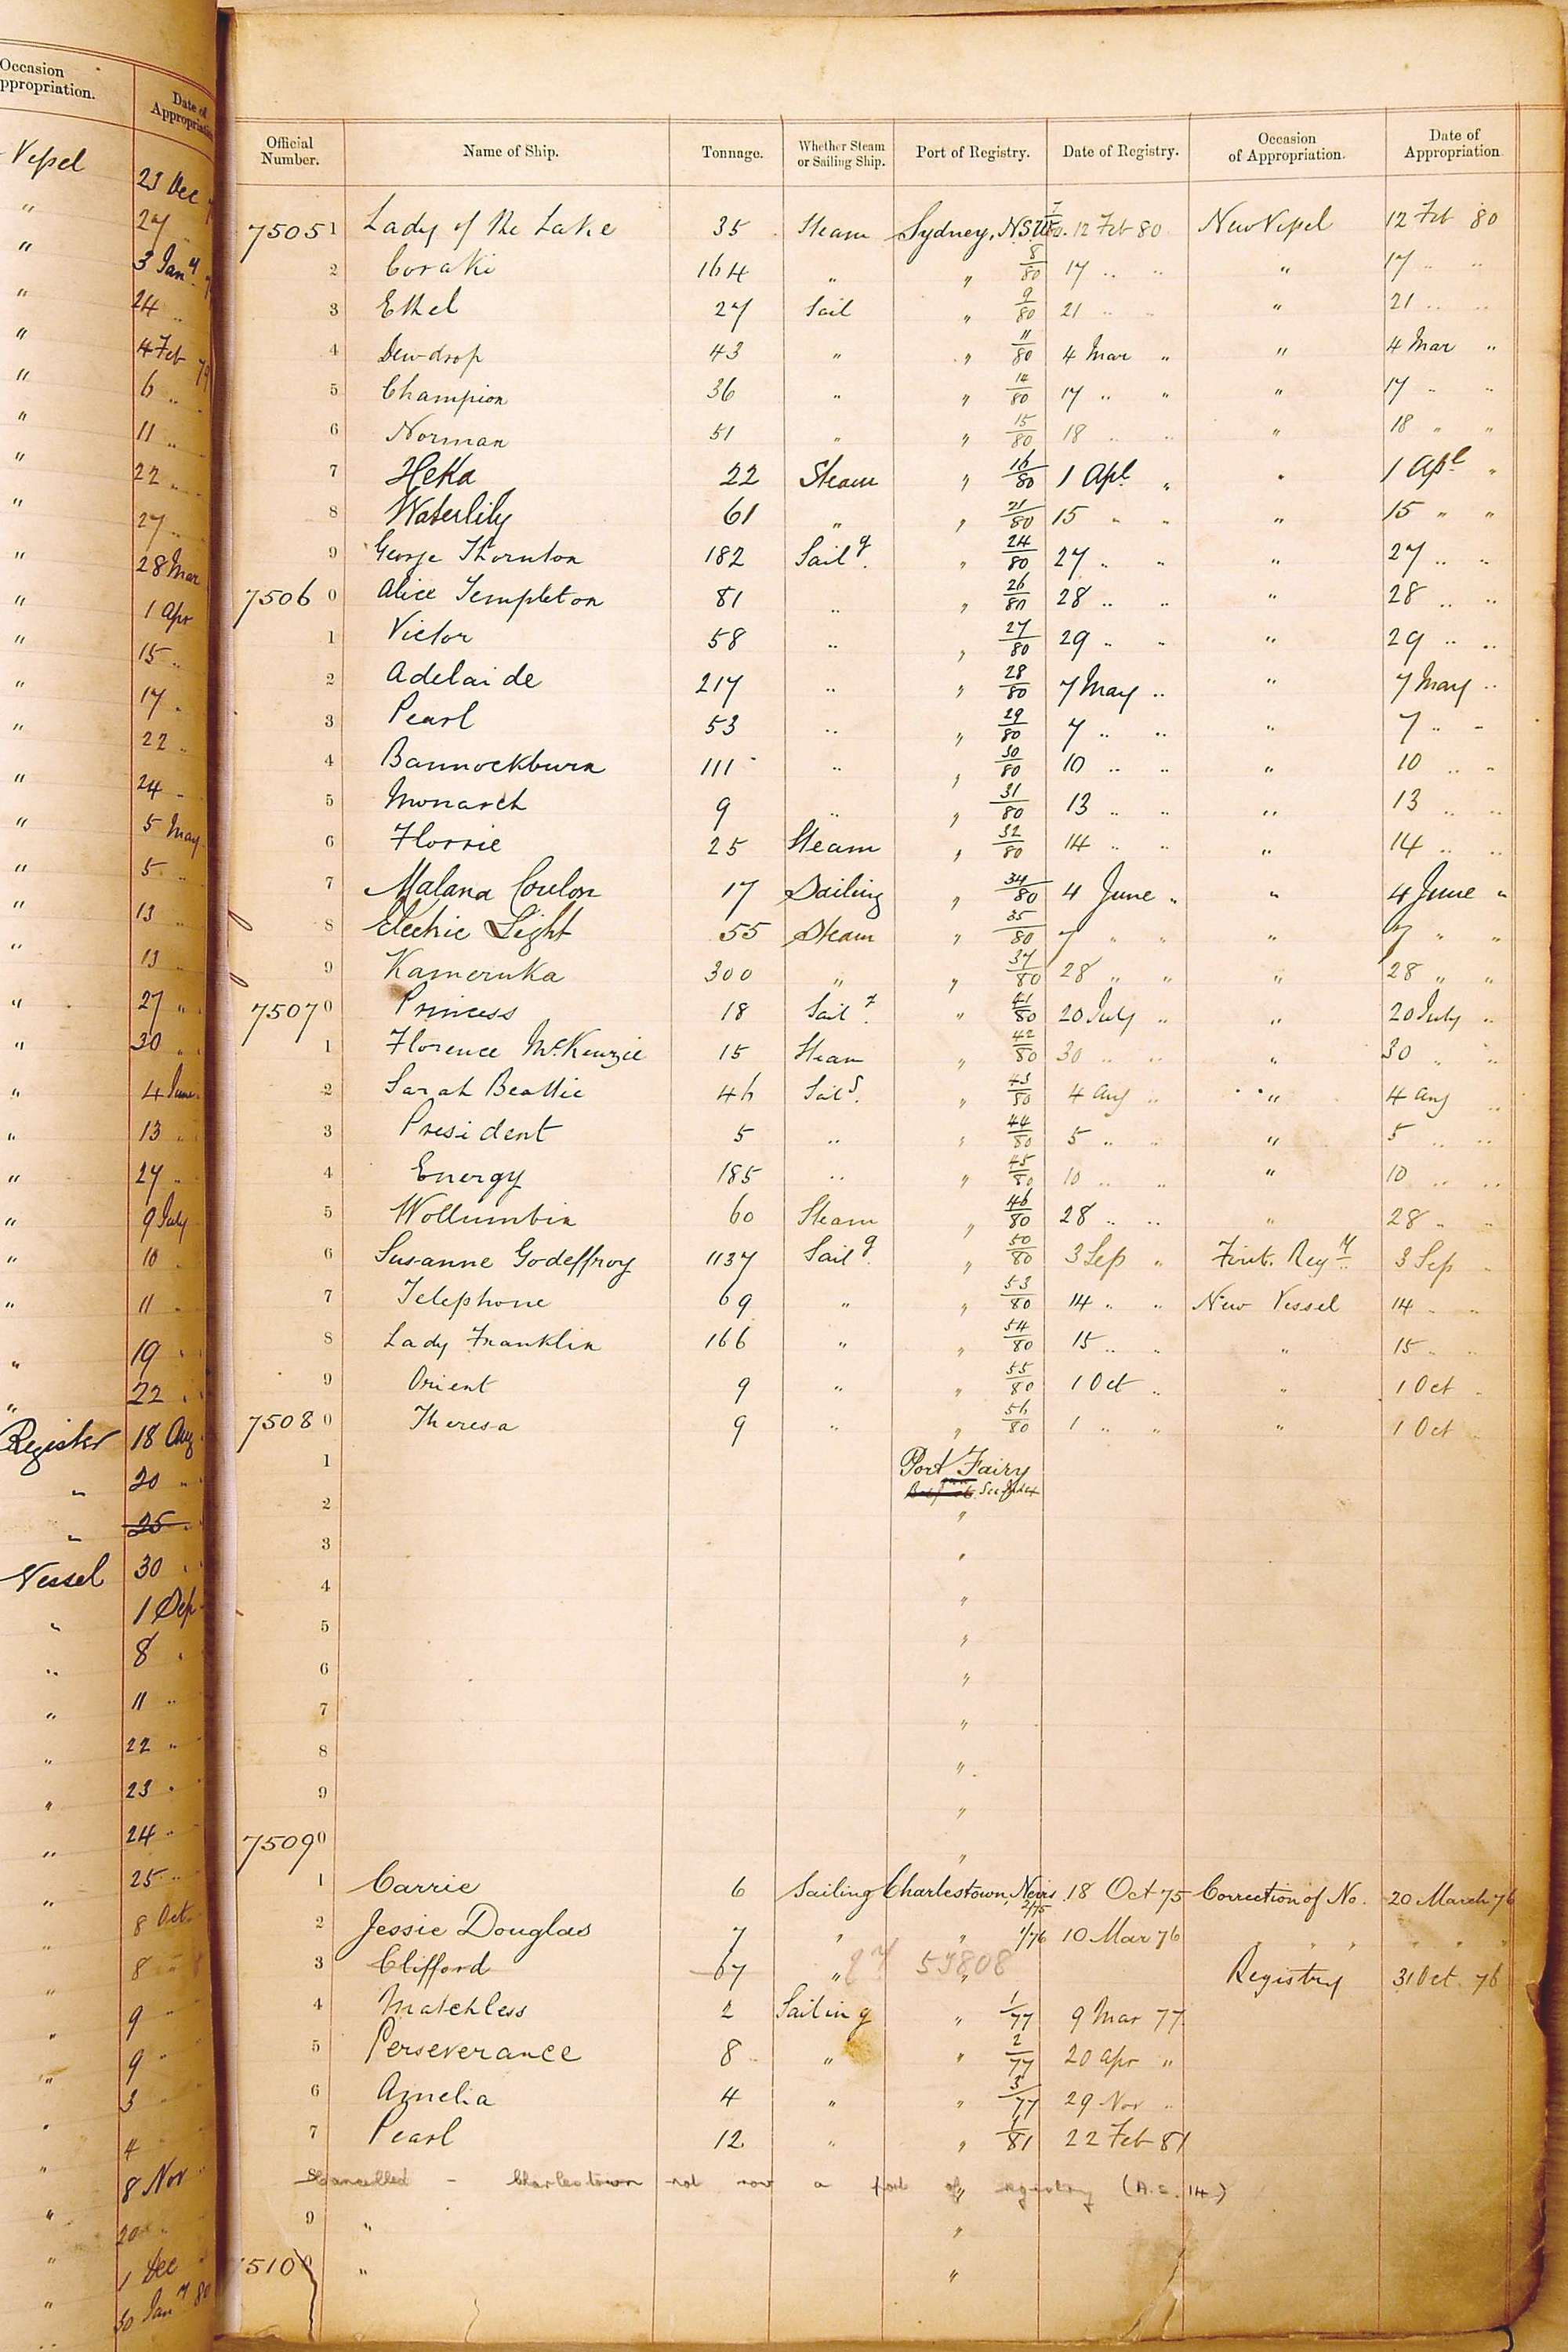 Occasion
ppropriation.
Date of
Appropriation
Vessel 23 Dec
" 27 "
" 3 Jany
" 24 "
" 4 Feb 79
" 6 "
" 11 "
" 22 "
" 27 "
" 28 Mar
" 1 Apr
" 15 "
" 17 "
" 22 "
" 24 "
" 5 May
" 5 "
" 13 "
" 13 "
" 27 "
" 30 "
" 4 June
" 13 "
" 27 "
" 9 July
" 10 "
" 11 "
" 19 "
" 22 "
Register 18 Aug
" 20 "
" 25 "
Vessel 30 "
" 1 Sep
" 8 "
" 11 "
" 22 "
" 23 "
" 24 "
" 25 "
" 8 Oct
" 8 "
" 9 "
" 9 "
" 3
" 4
" 8 Nov
" 20 "
" 1 Dec
" 30 Jany 80
Official Number. Name of Ship. Tonnage. Whether Steam or Sailing Ship. Port of Registry. Date of Registry. Occasion of Appropriation. Date of Appropriation.
75051 Lady of the Lake 35 Steam Sydney, NSW 7/80. 12 Feb 80 New Vessel 12 Feb 80
2 Coraki 164 " " 8/80 17 " " " 17 " "
3 Ethel 27 Sail " 9/80 21 " " " 21 " "
4 Dewdrop 43 " " 11/80 4 Mar " " 4 Mar "
5 Champion 36 " " 14/80 17 " " " 17 " "
6 Norman 51 " " 15/80 18 " " " 18 " "
7 Heka 22 Steam " 16/80 1 Apl " " 1 Apl "
8 Waterlily 61 " " 21/80 15 " " " 15 " "
9 George Thornton 182 Sailg. " 24/80 27 " " " 27 " "
75060 Alice Templeton 81 " " 26/80 28 " " " 28 " "
1 Victor 58 " " 27/80 29 " " " 29 " "
2 Adelaide 217 " " 28/80 7 May " " 7 May "
3 Pearl 53 " " 29/80 7 " " " 7 " "
4 Bannockburn 111 " " 30/80 10 " " " 10 " "
5 Monarch 9 " " 31/80 13 " " " 13 " "
6 Florrie 25 Steam " 32/80 14 " " " 14 " "
7 Malana Coulon 17 Sailing " 34/80 4 June " " 4 June "
8 Electric Light 55 Steam " 35/80 7 " " " 7 " "
9 Kameruka 300 " " 37/80 28 " " " 28 " "
75070 Princess 18 Sailg. " 41/80 20 July " " 20 July "
1 Florence McKenzie 15 Steam " 42/80 30 " " " 30 " "
2 Sarah Beattie 46 Sailg. " 43/80 4 Aug " " 4 Aug "
3 President 5 " " 44/80 5 " " " 5 " "
4 Energy 185 " " 45/80 10 " " " 10 " "
5 Wollumbin 60 Steam " 46/80 28 " " " 28 " "
6 Susanne Godeffroy 1137 Sailg. " 50/80 3 Sep " First. Regy 3 Sep "
7 Telephone 69 " " 53/80 14 " " New Vessel 14 " "
8 Lady Franklin 166 " " 54/80 15 " " " 15 " "
9 Orient 9 " " 55/80 1 Oct " " 1 Oct "
75080 Theresa 9 " " 56/80 1 " " " 1 Oct
1 Port Fairy
See Index
2 "
3 "
4 "
5 "
6 "
7 "
8 "
9 "
75090 "
1 Carrie 6 Sailing Charlestown, Nevis 2/75 18 Oct 75 Correction of No. 20 March 76
2 Jessie Douglas 7 " " 1/76 10 Mar 76 " " " " " "
3 Clifford 67 " " 53808 Registry 31 Oct 76
4 Matchless 2 Sailing " 1/77 9 Mar 77
5 Perseverance 8 " " 2/77 20 Apr "
6 Amelia 4 " " 3/77 29 Nov "
7 Pearl 12 " " 1/81 22 Feb 81
8 Cancelled - Charlestown not now a port of registry (A.S. 14)
9 " "
75100 " "